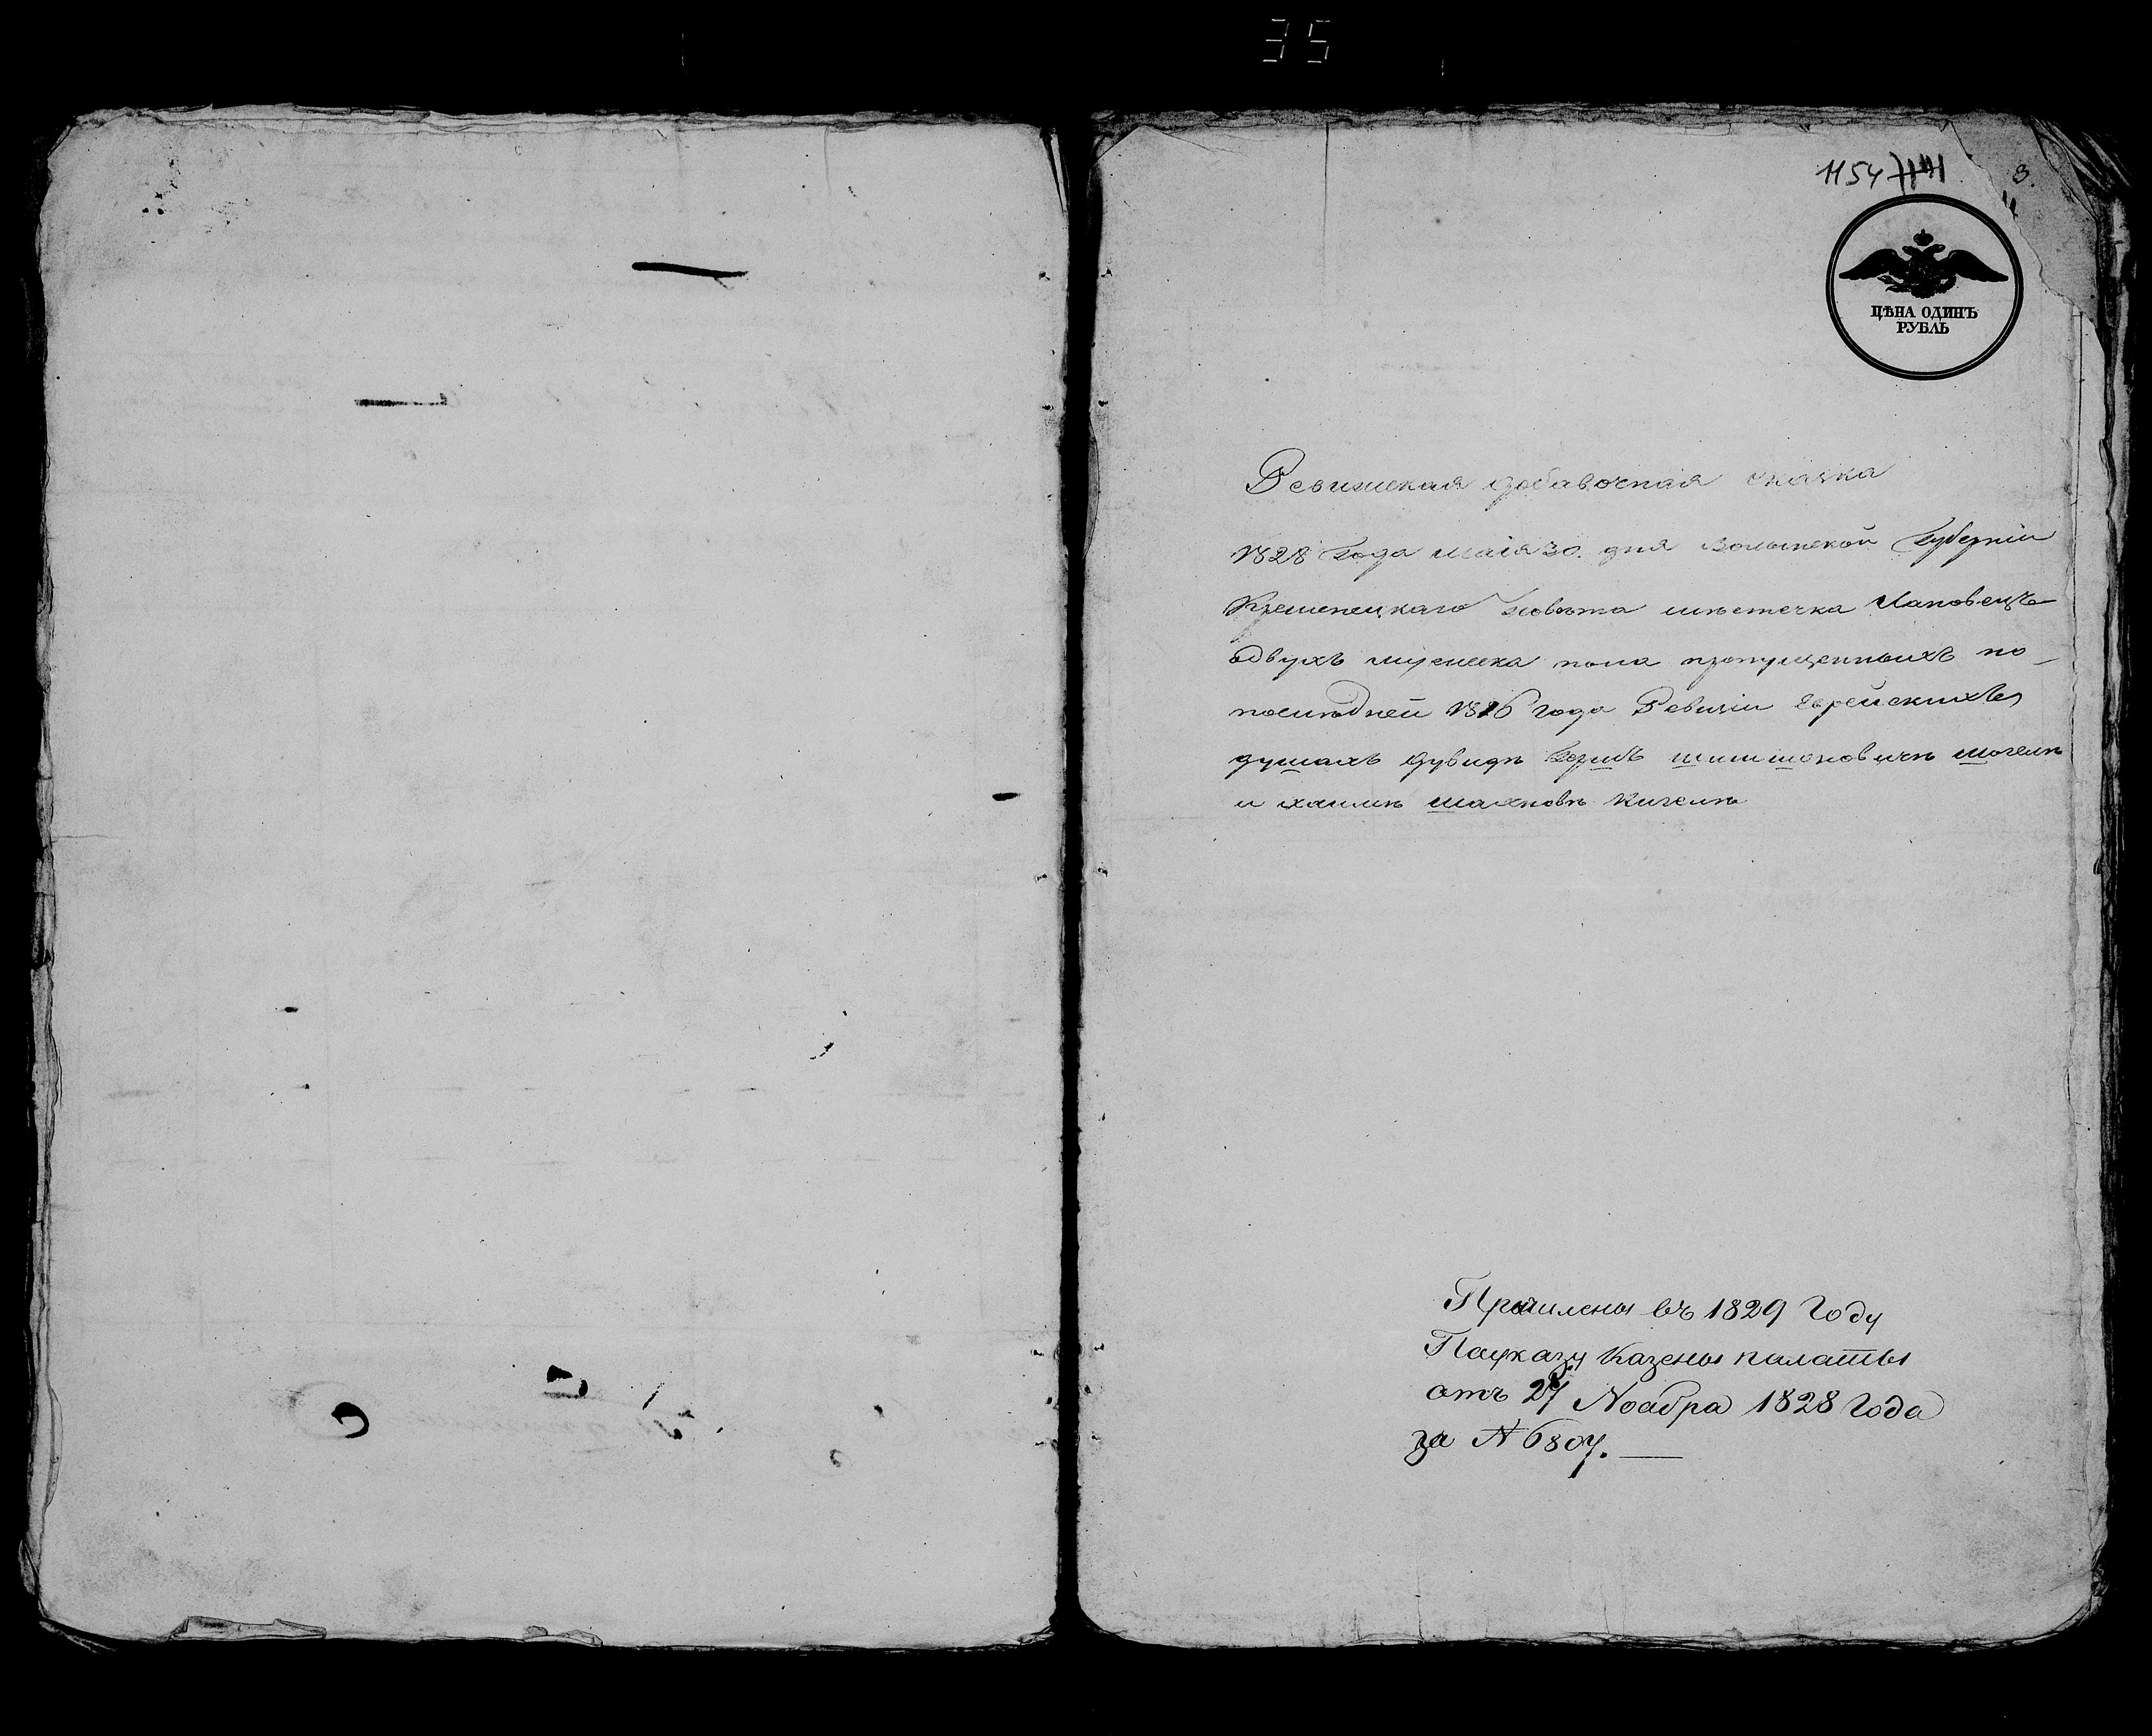 35
1154
3.
ЦѢНА ОДИНЪ
РУБЛЬ
Ревижская добавочная скаска
1828 Года маія 30. дня Волынской Губерніи
Кременецкаго Повѣта мѣстечка Лановецъ
одвухъ мужеска пола пропущенныхъ по
послѣдней 1816 года Ревизіи Еврейскихъ
душахъ Дувидѣ
и Хаимѣ Шахновѣ Кигелѣ
Причислены въ 1829 Году
Поуказу Казены палаты
отъ 27 Ноабра 1828 Года
за N 6807.